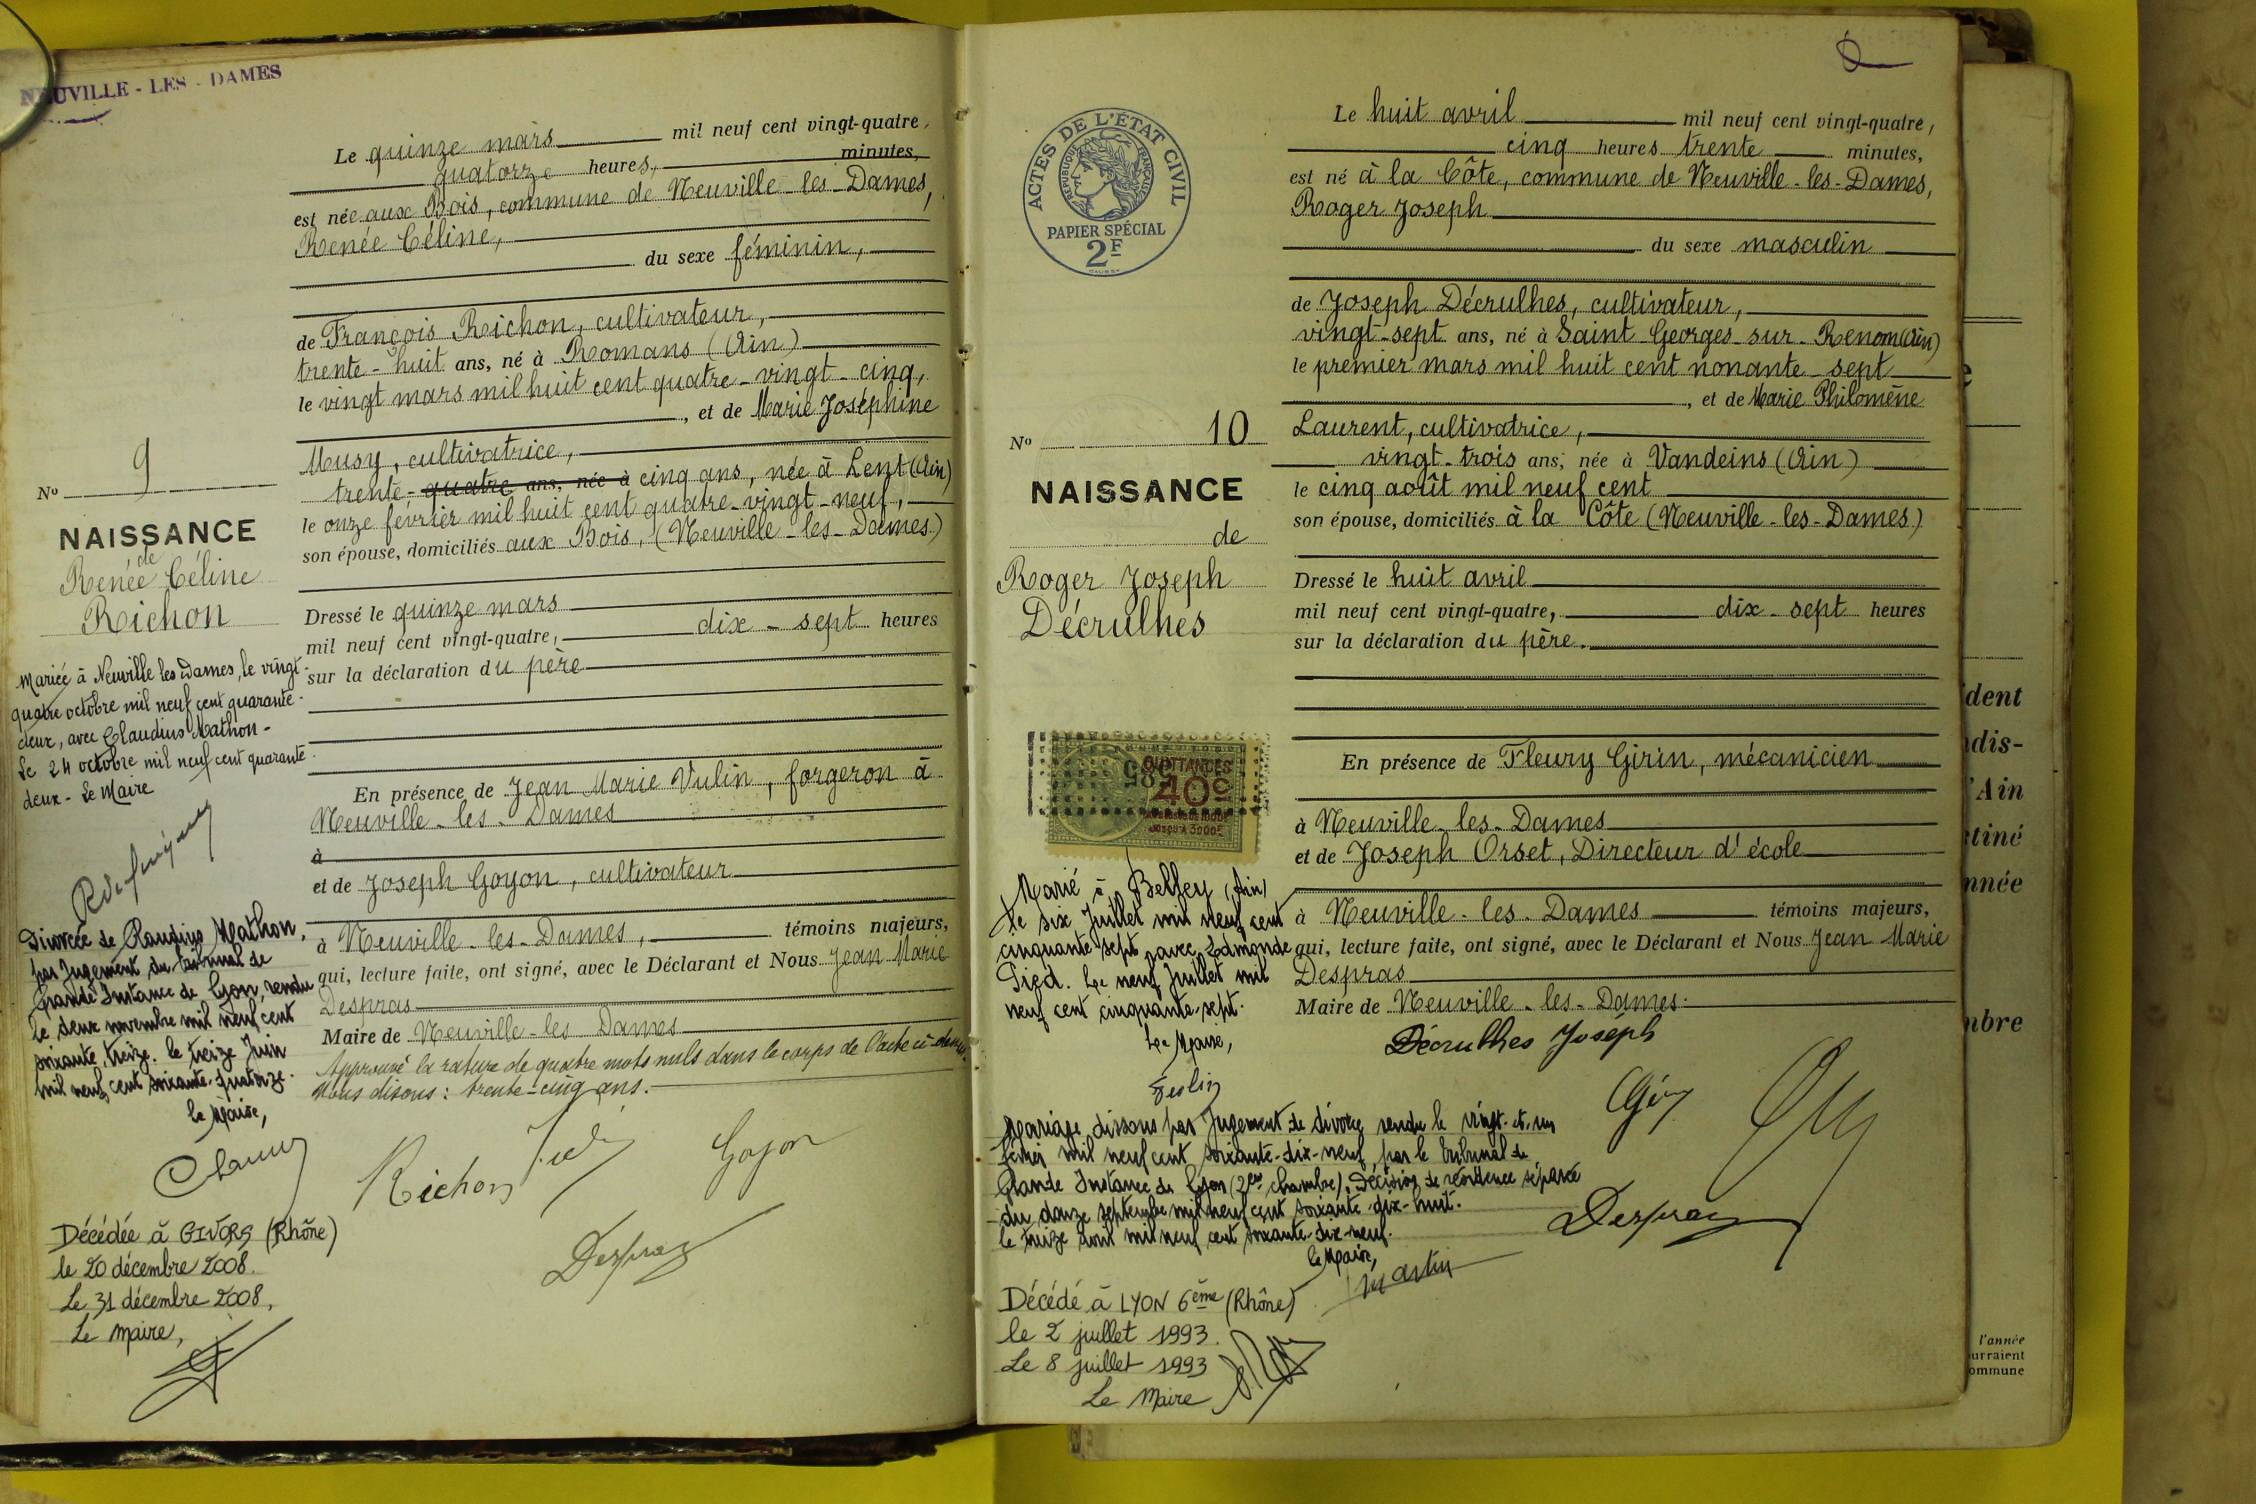 NEUVILLE - LES - DAMES
Le quinze mars mil neuf cent vingt-quatre,
quatorze heures, minutes,
est née aux Bois, commune de Neuville-les-Dames,
Renée Céline,
du sexe féminin,
de François Richon, cultivateur,
trente-huit ans, né à Romans (Ain)
le vingt mars mil huit cent quatre-vingt-cinq,
, et de Marie Joséphine
Musy, cultivatrice,
trente-quatre ans, née à cinq ans, née à Lent (Ain)
le onze février mil huit cent quatre-vingt-neuf,
son épouse, domiciliés aux Bois, (Neuville-les-Dames.)
Dressé le quinze mars
mil neuf cent vingt-quatre, dix-sept heures
sur la déclaration du père
En présence de Jean Marie Vulin, forgeron à
Neuville-les-Dames
à
et de Joseph Goyon, cultivateur
à Neuville-les-Dames, témoins majeurs,
qui, lecture faite, ont signé, avec le Déclarant et Nous Jean Marie
Despras
Maire de Neuville-les-Dames
Approuvé la rature de quatre mots nuls dans le corps de l'acte ci-dessus
Nous disons: trente-cinq ans.
Richon Goyon
Despras
No 9
NAISSANCE
de
Renée Céline
Richon
Mariée à Neuville les Dames, le vingt-
quatre octobre mil neuf cent quarante-
deux, avec Claudius Mathon-
Le 24 octobre mil neuf cent quarante
deux - Le Maire
Divorcée de Claudius Mathon,
par Jugement du tribunal de
Grande Instance de Lyon, rendu
le deux novembre mil neuf cent
soixante, treize. le treize Juin
mil neuf cent soixante-quatorze.
le Maire,
Décédée à GIVORS (Rhône)
le 20 décembre 2008.
Le 31 décembre 2008,
Le Maire,
ACTES DE L'ÉTAT CIVIL
RÉPUBLIQUE FRANÇAISE
PAPIER SPÉCIAL
2F
Le huit avril mil neuf cent vingt-quatre,
cinq heures trente minutes,
est né à la Côte, commune de Neuville-les-Dames,
Roger Joseph
du sexe masculin
de Joseph Décrulhes, cultivateur,
vingt-sept ans, né à Saint-Georges-sur-Renom (Ain)
le premier mars mil huit cent nonante-sept
, et de Marie Philomène
Laurent, cultivatrice,
vingt-trois ans, née à Vandeins (Ain)
le cinq août mil neuf cent
son épouse, domiciliés à la Côte (Neuville-les-Dames)
Dressé le huit avril
mil neuf cent vingt-quatre, dix-sept heures
sur la déclaration du père.
En présence de Fleury Girin, mécanicien
à Neuville-les-Dames
et de Joseph Orset, Directeur d'école
à Neuville-les-Dames témoins majeurs,
qui, lecture faite, ont signé, avec le Déclarant et Nous Jean Marie
Despras
Maire de Neuville-les-Dames.
Décrulhes Joseph
Despras
No 10
NAISSANCE
de
Roger Joseph
Décrulhes
QUITTANCES
40c
Marié à Belley (Ain)
le six Juillet mil neuf cent
cinquante sept, avec Edmonde
. Le neuf Juillet mil
neuf cent cinquante-sept.
Le Maire,
Mariage dissous par Jugement de divorce rendu le vingt-et-un
février mil neuf cent soixante-dix-neuf, par le tribunal de
Grande Instance de Lyon (2ème chambre). Décision de résidence séparée
du douze septembre mil neuf cent soixante-dix-huit.
le août mil neuf cent soixante-dix-neuf.
le Maire,
Martin
Décédé à LYON 6ème (Rhône)
le 2 juillet 1993.
Le 8 juillet 1993
Le Maire
dent
dis-
l'Ain
tiné
nnée
mbre
l'année
ourraient
ommune